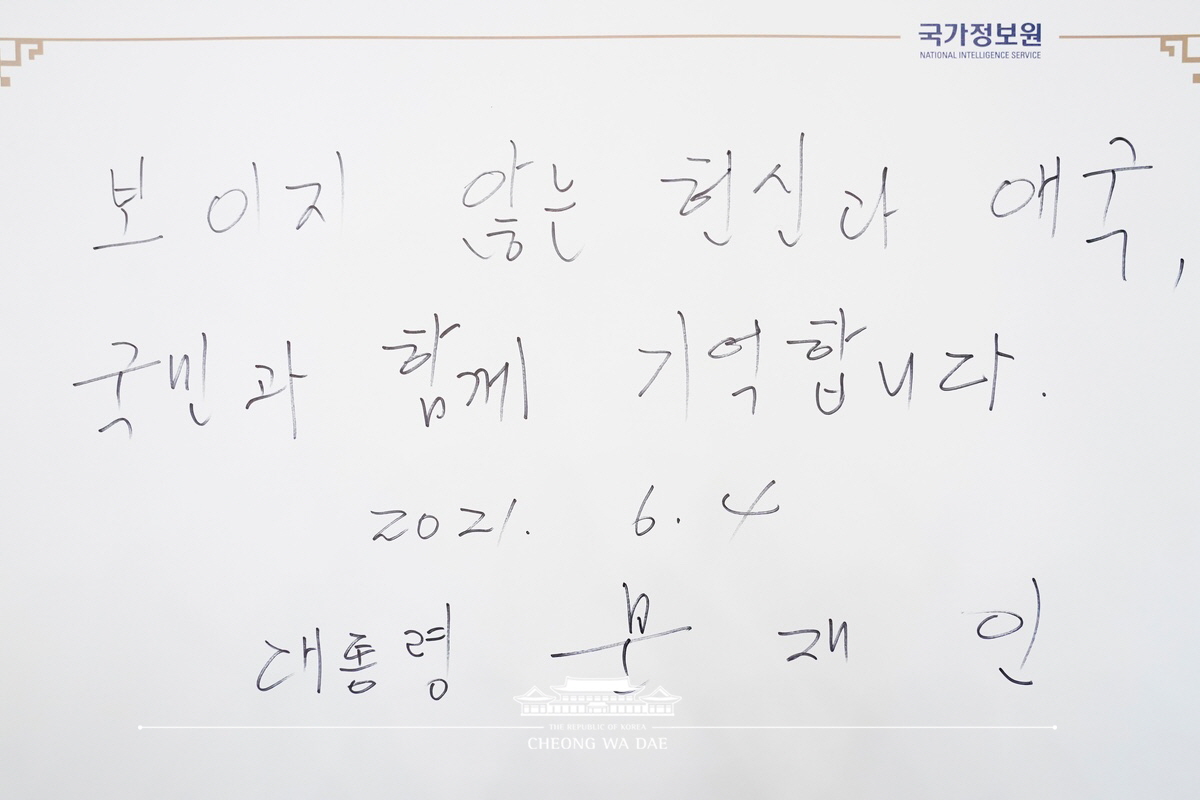 국가정보원
NATIONAL INTELLIGENCE SERVICE
보이지 않는 헌신과 애국,
국민과 함께 기억합니다.
2021. 6. 4
대통령 문 재 인
THE REPUBLIC OF KOREA
CHEONG WA DAE